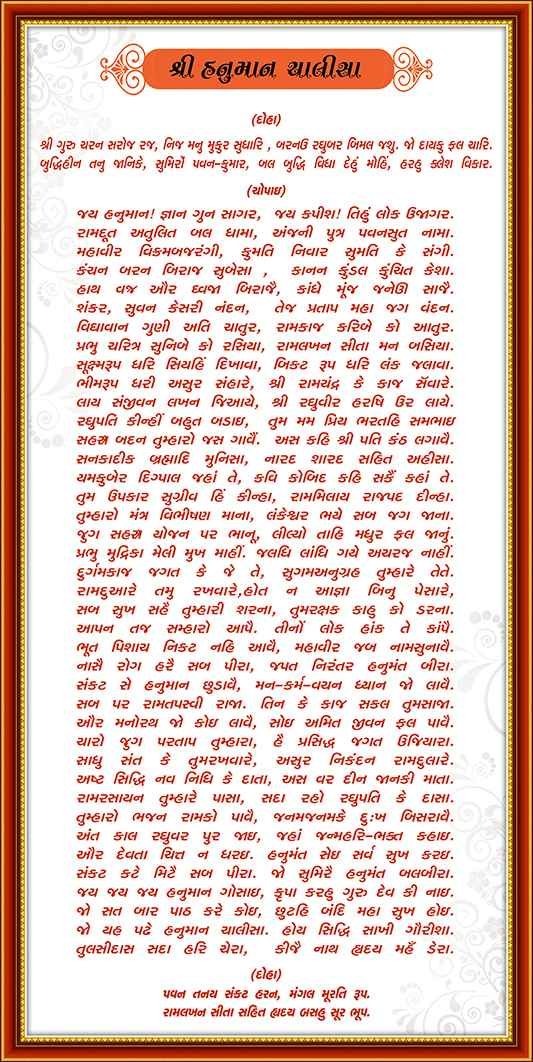 શ્રી હનુમાન ચાલીસા
(દોહા)
શ્રી ગુરુ ચરન સરોજ રજ, નિજ મનુ મુકુર સુધારિ , બરનઉ રઘુબર બિમલ જશુ. જો દાયકુ ફલ ચારિ.
બુદ્ધિહીન તનુ જાનિકે, સુમિરૌં પવન-કુમાર, બલ બુદ્ધિ વિધા દેહું મોહિં, હરહુ ક્લેશ વિકાર.
(ચોપાઇ)
જય હનુમાન! જ્ઞાન ગુન સાગર, જય કપીશ! તિહું લોક ઉજાગર.
રામદૂત અતુલિત બલ ધામા, અંજની પુત્ર પવનસુત નામા.
મહાવીર વિક્રમબજરંગી, કુમતિ નિવાર સુમતિ કે સંગી.
કંચન બરન બિરાજ સુબેસા , કાનન કુંડલ કુંચિત કેશા.
હાથ વજ્ર ઔર ધ્વજા બિરાજૈ, કાંધે મૂંજ જનેઊ સાજૈ.
શંકર, સુવન કેસરી નંદન, તેજ પ્રતાપ મહા જગ વંદન.
વિદ્યાવાન ગુણી અતિ ચાતુર, રામકાજ કરિબે કો આતુર.
પ્રભુ ચરિત્ર સુનિબે કો રસિયા, રામલખન સીતા મન બસિયા.
સૂક્ષ્મરૂપ ધરિ સિયહિં દિખાવા, બિકટ રૂપ ધરિ લંક જલાવા.
ભીમરૂપ ધરી અસુર સંહારે, શ્રી રામચંદ્ર કે કાજ સઁવારે.
લાય સંજીવન લખન જિઆયે, શ્રી રઘુવીર હરષિ ઉર લાયે.
રઘુપતિ કીન્હીં બહુત બડાઇ, તુમ મમ પ્રિય ભરતહિ સમભાઇ
સહસ્ત્ર બદન તુમ્હારો જસ ગાવૈં. અસ કહિ શ્રી પતિ કંઠ લગાવૈ.
સનકાદીક બ્રહ્માદિ મુનિસા, નારદ શારદ સહિત અહીસા.
યમકુબેર દિગ્પાલ જહાં તે, કવિ કોબિદ કહિ સકૈં કહાં તે.
તુમ ઉપકાર સુગ્રીવ હિં કીન્હા, રામમિલાય રાજપદ દીન્હા.
તુમ્હારો મંત્ર વિભીષણ માના, લંકેશ્વર ભયે સબ જગ જાના.
જુગ સહસ્ત્ર યોજન પર ભાનૂ, લીલ્યો તાહિ મધુર ફલ જાનું.
પ્રભુ મુદ્રિકા મેલી મુખ માહીં. જલધિ લાંધિ ગયે અચરજ નાહીં.
દુર્ગમકાજ જગત કે જે તે, સુગમઅનુગ્રહ તુમ્હારે તેતે.
રામદુઆરે તમુ રખવારે,હોત ન આજ્ઞા બિનુ પેસારે,
સબ સુખ સહૈ તુમ્હારી શરના, તુમરક્ષક કાહુ કો ડરના.
આપન તજ સમ્હારો આપૈ. તીનોં લોક હાંક તે કાંપૈ.
ભૂત પિશાચ નિકટ નહિ આવૈ, મહાવીર જબ નામસુનાવૈ.
નાસૈ રોગ હરૈ સબ પીરા, જપત નિરંતર હનુમંત બીરા.
સંકટ સે હનુમાન છુડાવૈ, મન-કર્મ-વચન ધ્યાન જો લાવૈ.
સબ પર રામતપસ્વી રાજા. તિન કે કાજ સકલ તુમસાજા.
ઔર મનોરથ જો કોઇ લાવૈ, સોઇ અમિત જીવન ફલ પાવૈ.
ચારો જુગ પરતાપ તુમ્હારા, હૈ પ્રસિદ્ધ જગત ઉજિયારા.
સાધુ સંત કે તુમરખવારે, અસુર નિકંદન રામદુલારે.
અષ્ટ સિદ્ધિ નવ નિધિ કે દાતા, અસ વર દીન જાનકી માતા.
રામરસાયન તુમ્હારે પાસા, સદા રહો રઘુપતિ કે દાસા.
તુમ્હારો ભજન રામકો પાવૈ, જનમજનમકે દુઃખ બિસરાવૈ.
અંત કાલ રઘુવર પુર જાઇ, જહાં જન્મહરિ-ભક્ત કહાઇ.
ઔર દેવતા ચિત્ત ન ધરઇ. હનુમંત સેઇ સર્વ સુખ કરઇ.
સંકટ કટૈ મિટૈ સબ પીરા. જો સુમિરૈ હનુમંત બલબીરા.
જય જય જય હનુમાન ગોસાઇ, કૃપા કરહુ ગુરુ દેવ કી નાઇ.
જો સત બાર પાઠ કરે કોઇ, છુટહિ બંદિ મહા સુખ હોઇ.
જો યહ પઢે હનુમાન ચાલીસા. હોય સિદ્ધિ સાખી ગૌરીશા.
તુલસીદાસ સદા હરિ ચેરા, કીજૈ નાથ હ્રદય મહઁ ડેરા.
(દોહા)
પવન તનય સંકટ હરન, મંગલ મૂરતિ રૂપ.
રામલખન સીતા સહિત હ્રદય બસહુ સૂર ભૂપ.